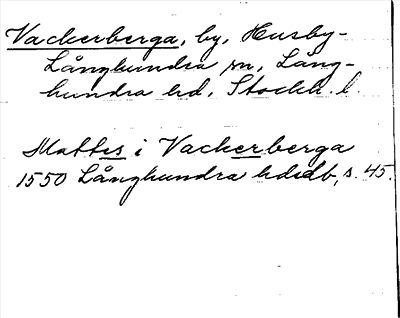 Vackerberga, by, Husby-
Långhundra sn, Lång-
hundra hd, Stockh. l.
Mattes i Vackerberga
1550 Långhundra hdsdb, s. 45.